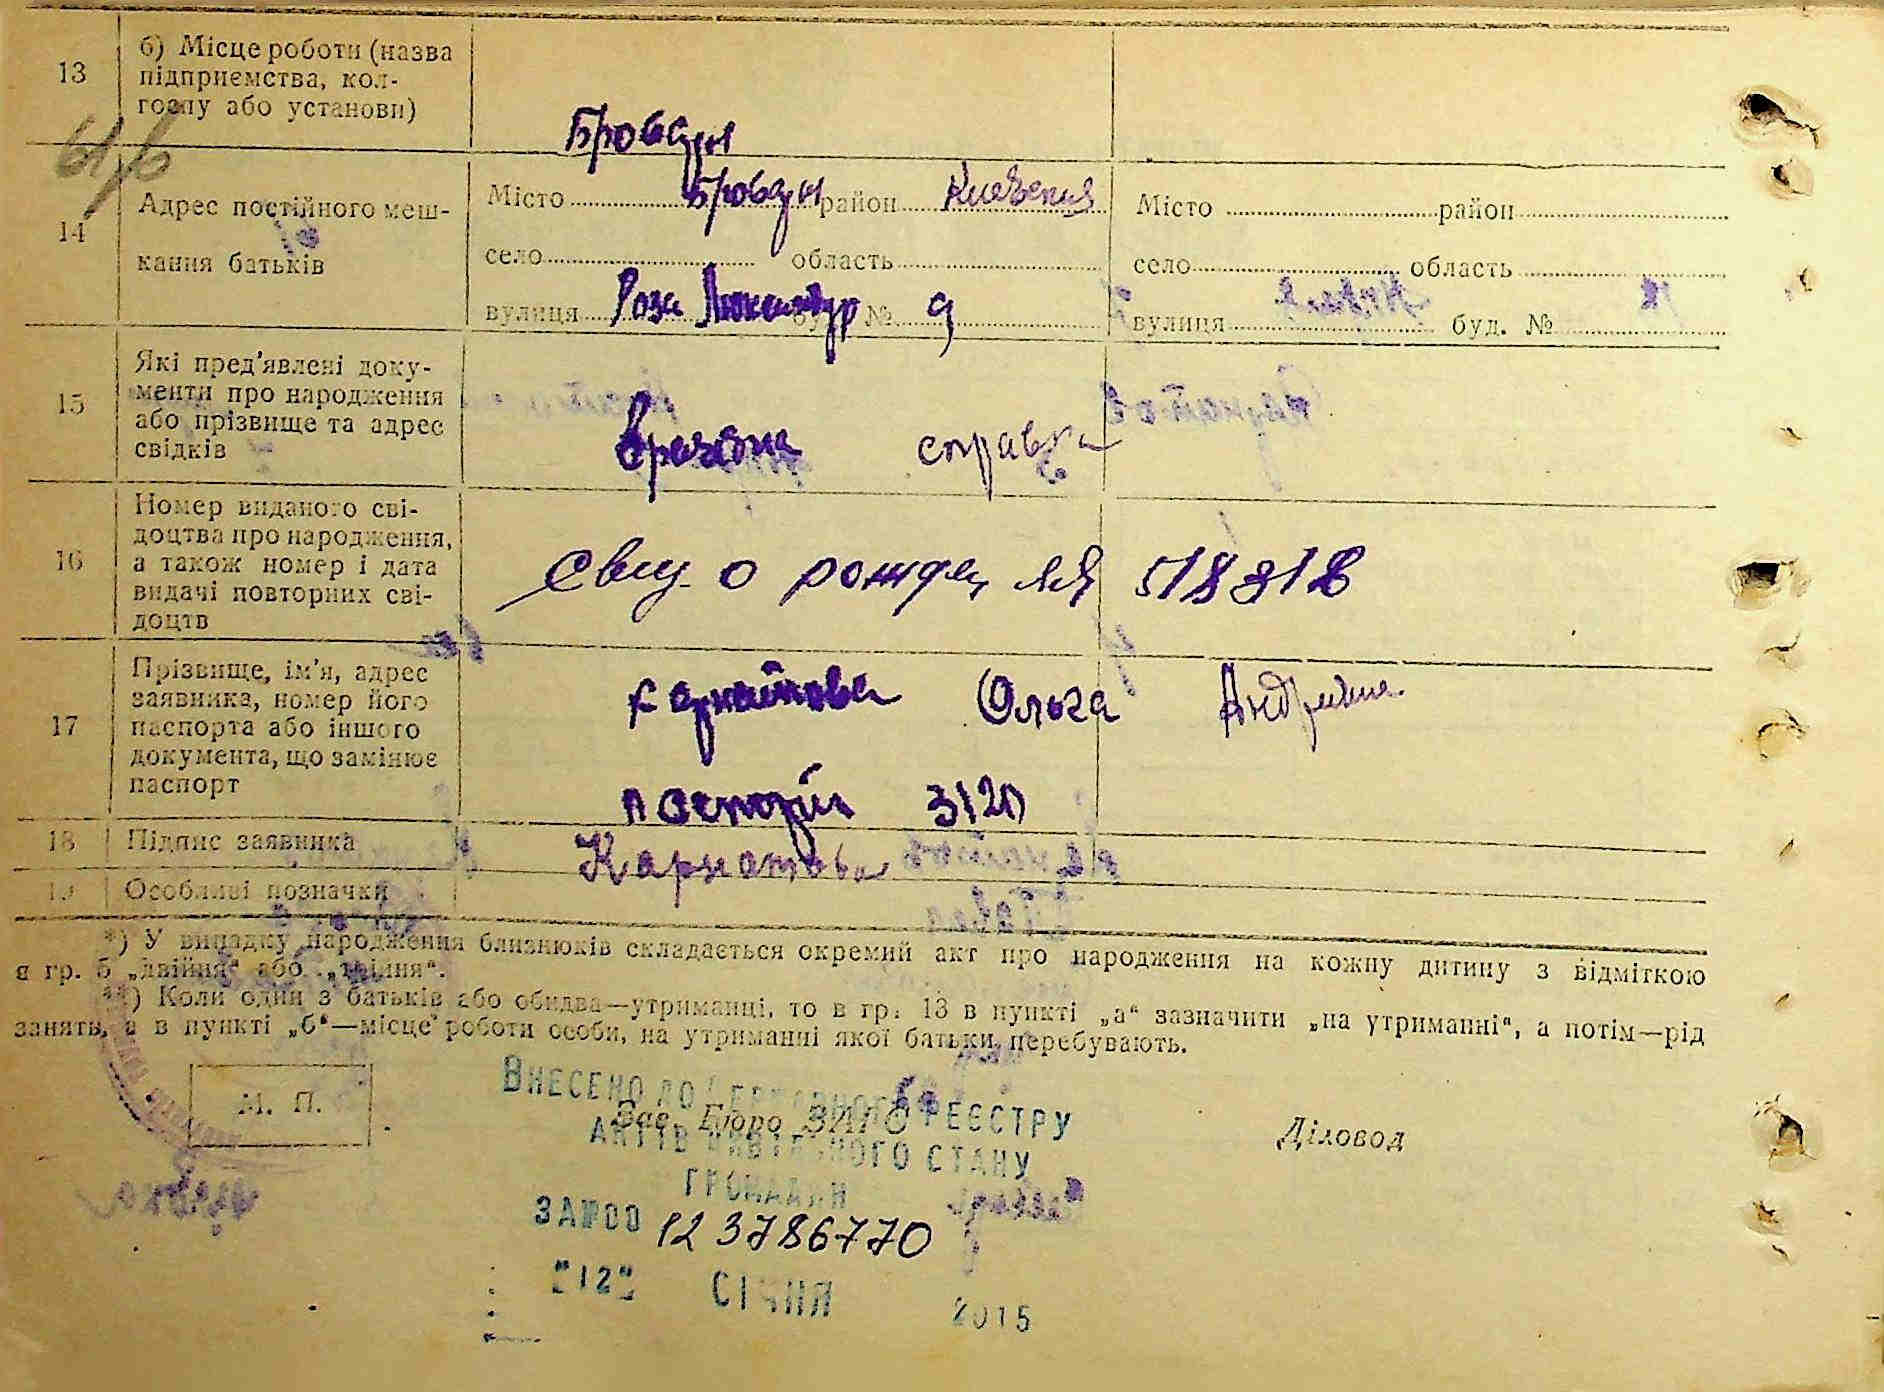 13 б) Місце роботи (назва
підприємства, кол-
госпу або установи)
14 Адрес постійного меш-
кання батьків
Місто район Киевская
село область
вулиця Роза Люксембур буд. № 9
Місто район
село область
вулиця буд. №
15 Які пред'явлені доку-
менти про народження
або прізвище та адрес
свідків
справка
16 Номер виданого сві-
доцтва про народження,
а також номер і дата
видачі повторних сві-
доцтв
о рожден
17 Прізвище, ім'я, адрес
заявника, номер його
паспорта або іншого
документа, що замінює
паспорт
Ольга
паспорт
18 Підпис заявника
Карпатова
19 Особливі позначки
*) У випадку народження близнюків складається окремий акт про народження на кожну дитину з відміткою
в гр. 5 „двійня“ або „трійня“.
**) Коли один з батьків або обидва—утриманці, то в гр. 13 в пункті „а“ зазначити „на утриманні“, а потім—рід
занять, а в пункті „б“—місце роботи особи, на утриманні якої батьки перебувають.
М. П.
Зав. Бюро ЗАГС
Діловод
Внесено до Державного реєстру
актів цивільного стану
громадян
ЗА№00 123786770
"12" січня 2015